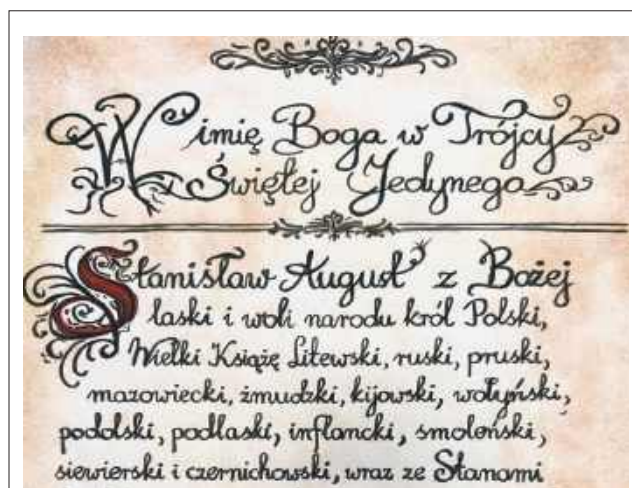 W imię Boga w Trójcy
Świętej Jedynego
Stanisław August z Bożej
łaski i woli narodu król Polski,
Wielki Książę Litewski, ruski, pruski,
mazowiecki, żmudzki, kijowski, wołyński,
podolski, podlaski, inflancki, smoleński,
siewierski i czernichowski, wraz ze Stanami